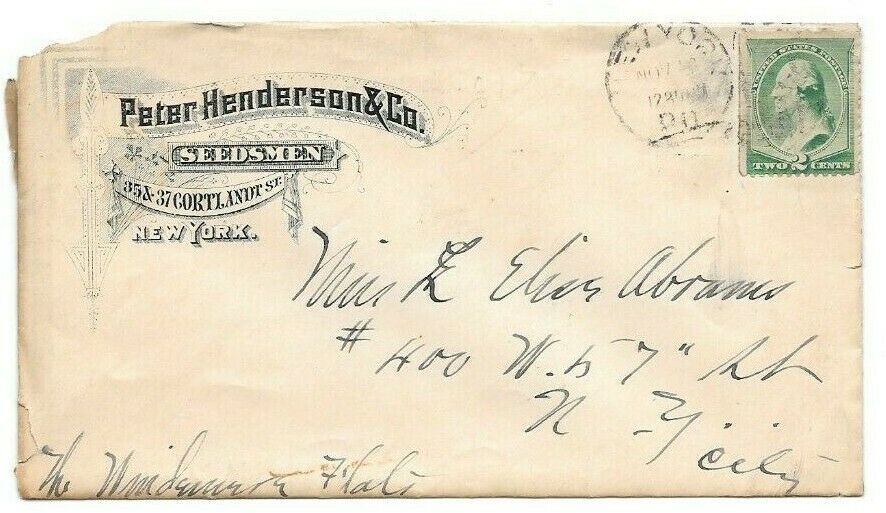 Peter Henderson & Co.
SEEDSMEN
35 & 37 CORTLANDT ST.
NEW YORK.
UNITED STATES POSTAGE
TWO 2 CENTS
P.O.
Miss L Elise Abrams
# 400 W. 57" St
N. Y.
City
The Windermere Flats